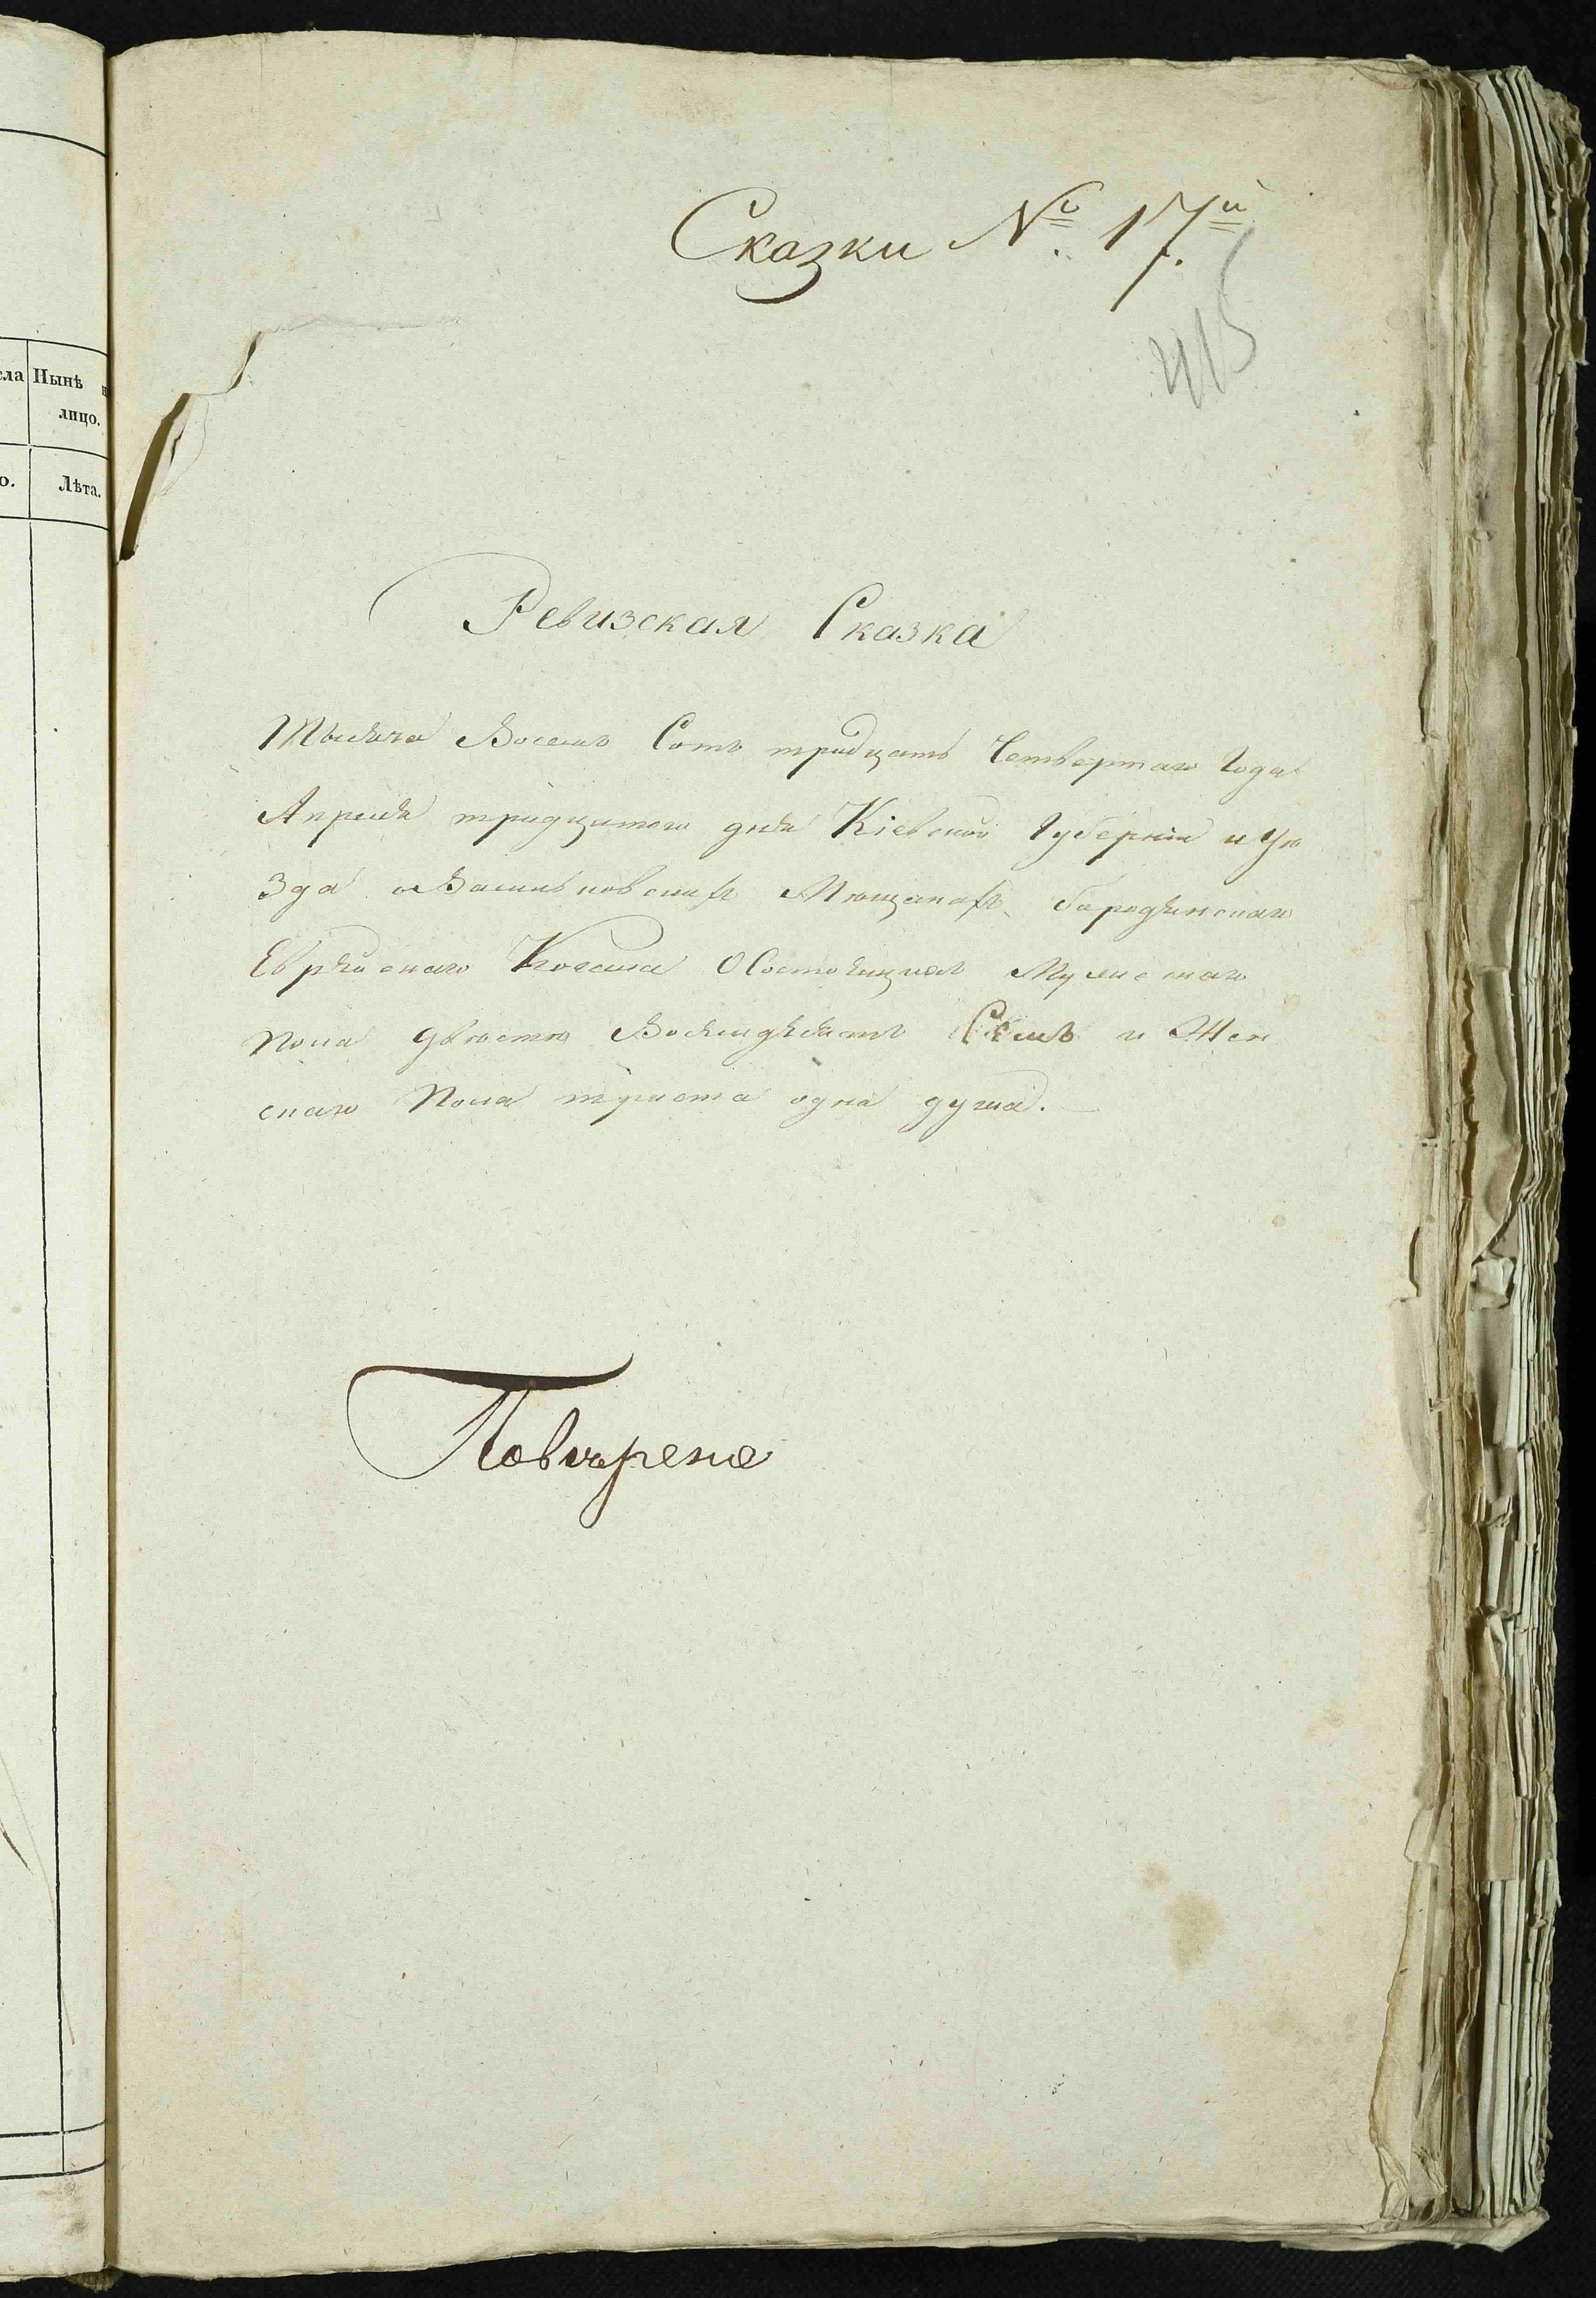 Сказки № 17й.
415
сла
Нынѣ
лицо.
о.
Лѣта.
Ревизская Сказка
Тысяча Восемь Сотъ тридцать Четвертаго Года
Апреля тридцатого дня Кіевской Губерніи и Уѣ
зда о Васильковскихъ Мѣщанахъ
Еврейскаго Кагала О Состоящихъ Мужескаго
Пола двѣстѣ Восемдѣсятъ Семъ и Жен
скаго Пола триста одна душа.
Повѣрено